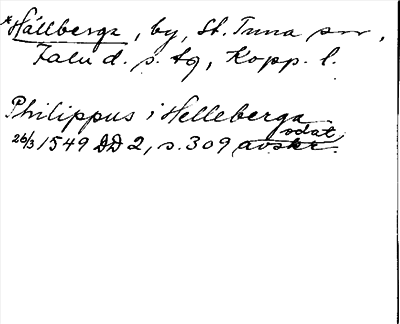 *Hällberga, by, St. Tuna sn,
Falu d. s. tg, Kopp. l.
Philippus i Helleberga
odat
26/3 1549 DD 2, s. 309 avskr.